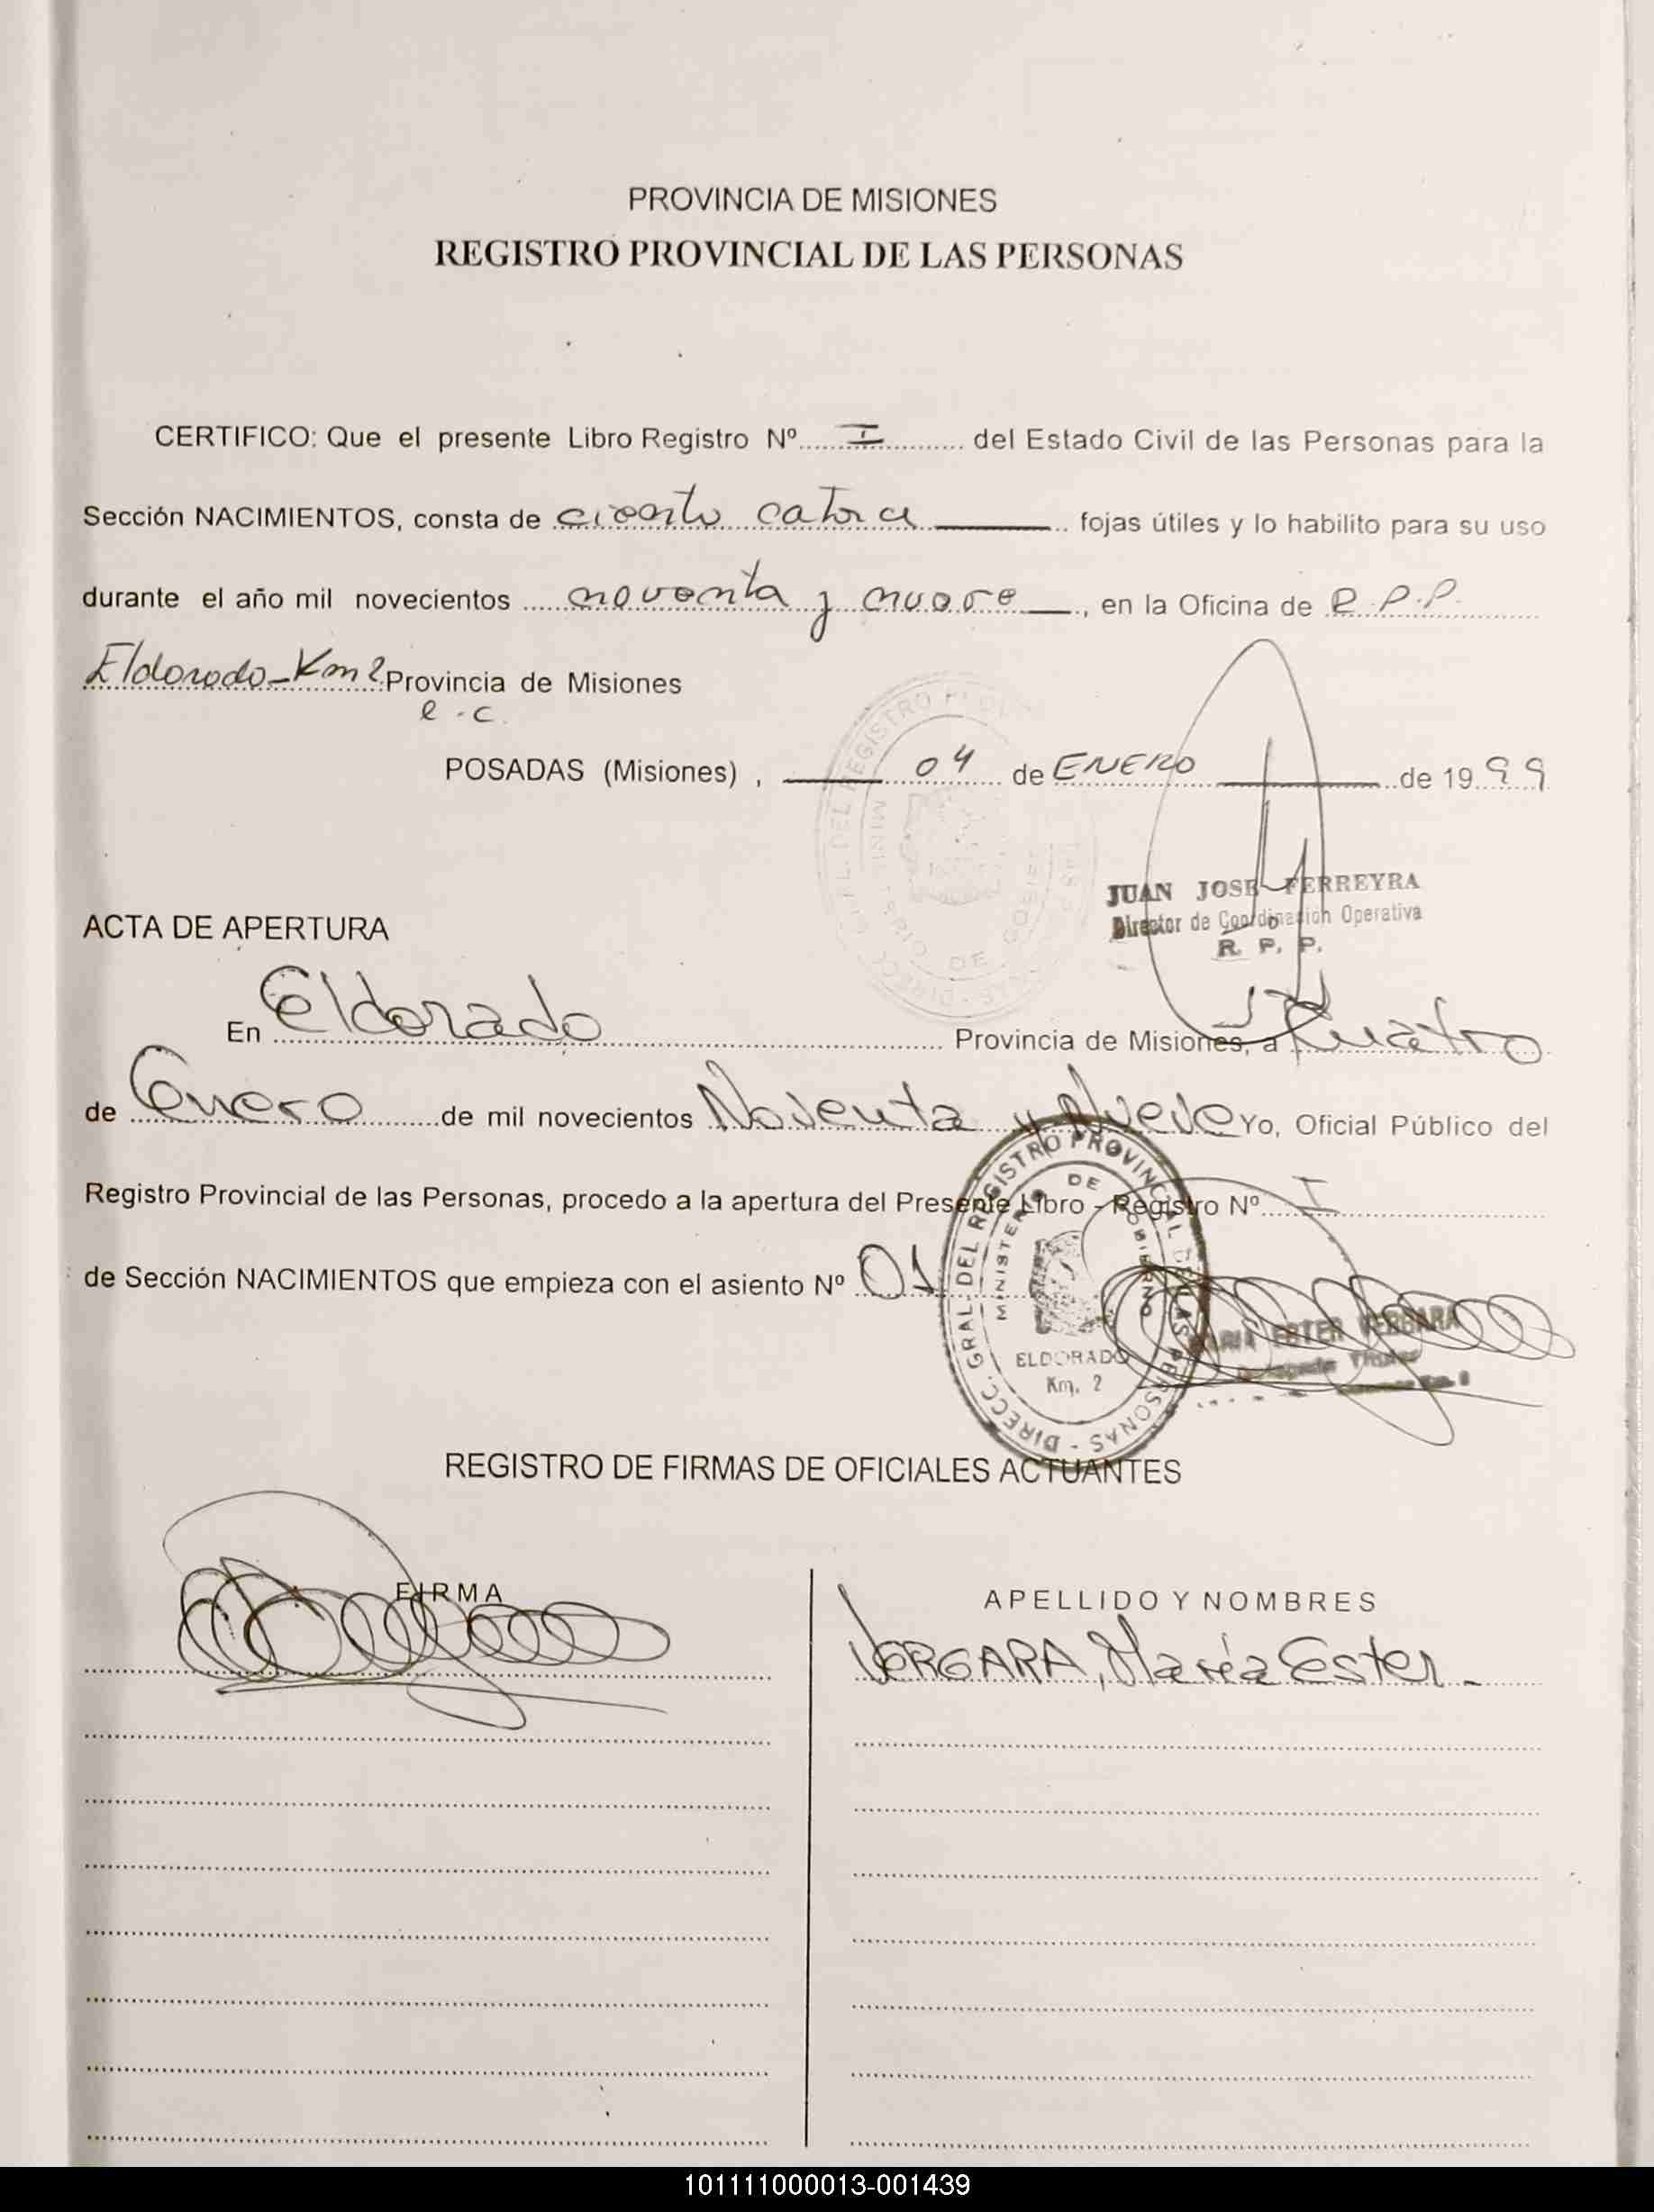 PROVINCIA DE MISIONES
REGISTRO PROVINCIAL DE LAS PERSONAS
CERTIFICO: Que el presente Libro Registro Nº I del Estado Civil de las Personas para la
Sección NACIMIENTOS, consta de ciento catorce fojas útiles y lo habilito para su uso
durante el año mil novecientos noventa y nueve, en la Oficina de R.P.P.
Eldorado-Km 2 Provincia de Misiones
e.c.
POSADAS (Misiones), 04 de ENERO de 1999
JUAN JOSE FERREYRA
Director de Coordinación Operativa
R. P. P.
ACTA DE APERTURA
En Eldorado Provincia de Misiones, a Cuatro
de Enero de mil novecientos Noventa y Nueve Yo, Oficial Público del
Registro Provincial de las Personas, procedo a la apertura del Presente Libro - Registro Nº I
de Sección NACIMIENTOS que empieza con el asiento Nº 01
DIRECC. GRAL. DEL REGISTRO PROVINCIAL DE LAS PERSONAS
MINISTERIO DE GOBIERNO
ELDORADO
Km. 2
MARIA ESTER VERGARA
REGISTRO DE FIRMAS DE OFICIALES ACTUANTES
FIRMA
APELLIDO Y NOMBRES
VERGARA, María Ester.
101111000013-001439